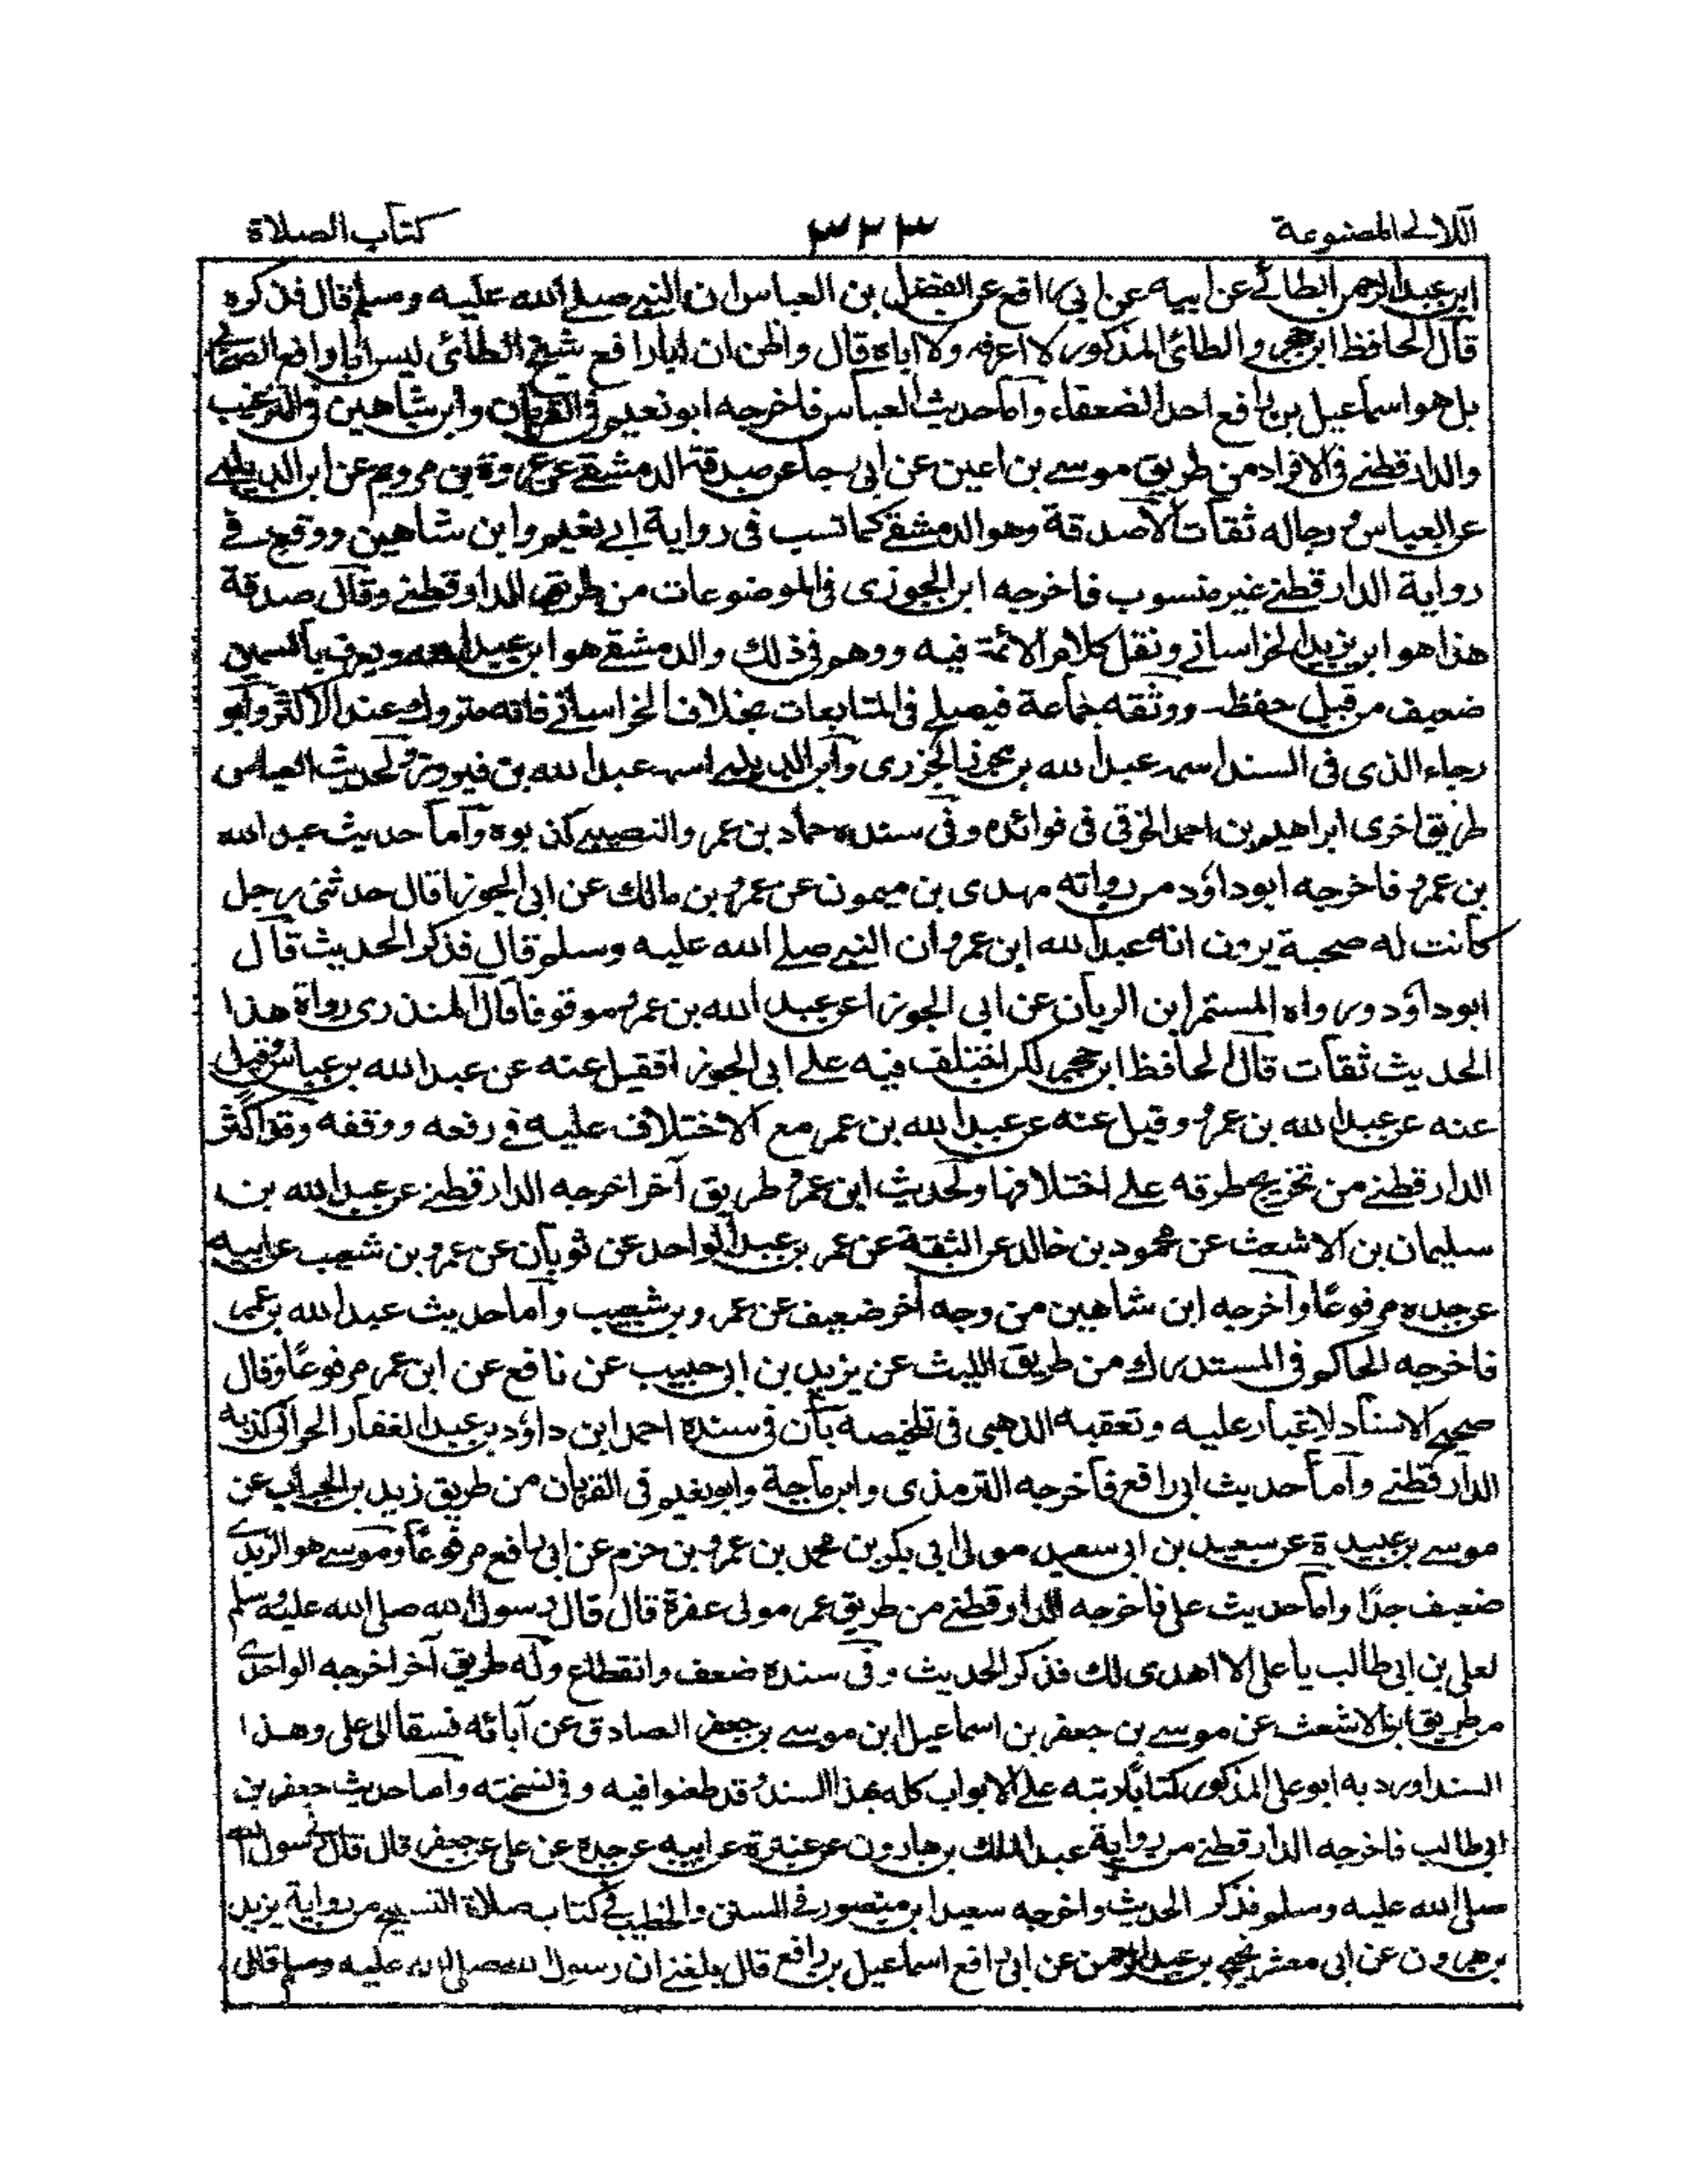 اللآلى المصنوعة ٣٢٣ كتاب الصلاة
ابن عبد الرحمن الطائے عن ابيه عن ابى رافع عن الفضل بن العباس ان النبى صلے الله عليه وسلم قال فذكره
قال الحافظ ابن حجر والطائى المذكور لا اعرفه ولا اباه قال واظن ان ابا رافع شيخ الطائى ليس ابا رافع الصحابى
بل هو اسماعيل بن رافع احد الضعفاء وأما حديث العباس فاخرجه ابو نعيم فى القربان وابن شاهين فى الترغيب
والدارقطنے فى الافراد من طريق موسے بن اعين عن ابى رجاء عن صدقة الدمشقے عن عروة بن رويم عن ابن الديلمے
عن العباس ورجاله ثقات الا صدقة وهو الدمشقے كما نسب فى رواية ابے نعيم وابن شاهين ووقع فے
رواية الدارقطنے غير منسوب فاخرجه ابن الجوزى فى الموضوعات من طريق الدارقطنے وقال صدقة
هذا هو ابن يزيد الخراسانے ونقل كلام الأئمة فيه ووهم فى ذلك والدمشقے هو ابن عبد الله ويعرف بالسمين
ضعيف من قبل حفظه ووثقه جماعة فيصلح فى المتابعات بخلاف الخراسانے فانه متروك عند الاكثر وأبو
رجاء الذى فى السند اسمه عبد الله بن محرز الجزرى وابن الديلمے اسمه عبد الله بن فيروز ولحديث العباس
طريق اخرى ابراهيم بن احمد الخرقى فى فوائده وفى سنده حماد بن عمرو النصيبے كذبوه وأما حديث عبد الله
بن عمرو فاخرجه ابو داؤد من رواته مهدى بن ميمون عن عمرو بن مالك عن ابى الجوزا قال حدثنى رجل
كانت له صحبة يرون انه عبد الله ابن عمرو ان النبے صلے الله عليه وسلم قال فذكر الحديث قال
ابو داؤد ورواه المستمر ابن الريان عن ابى الجوزا عن عبد الله بن عمرو موقوفا قال المنذرى رواة هذا
الحديث ثقات قال الحافظ ابن حجر لكن اختلف فيه علے ابى الجوزا فقيل عنه عن عبد الله بن عباس وقيل
عنه عن عبد الله بن عمرو وقيل عنه عن عبد الله بن عمر مع الاختلاف عليه فے رفعه ووقفه وقد اكثر
الدارقطنے من تخريج طرقه علے اختلافها ولحديث ابن عمرو طريق آخر اخرجه الدارقطنے عن عبد الله بن
سليمان بن الاشعث عن محمود بن خالد عن الثقة عن عمر بن عبد الواحد عن ثوبان عن عمرو بن شعيب عن ابيه
عن جده مرفوعًا وأخرجه ابن شاهين من وجه آخر ضعيف عن عمرو بن شعيب وأما حديث عبد الله بن عمر
فاخرجه الحاكم فى المستدرك من طريق الليث عن يزيد بن ابى حبيب عن نافع عن ابن عمر مرفوعًا وقال
صحيح الاسناد لا غبار عليه وتعقبه الذهبى فى تلخيصه بأن فى سنده احمد ابن داؤد بن عبد الغفار الحرانى كذبه
الدارقطنے وأما حديث ابى رافع فأخرجه الترمذى وابن ماجة وابو نعيم فى القربان من طريق زيد بن الحباب عن
موسے بن عبيدة عن سعيد بن ابى سعيد مولى ابى بكر بن محمد بن عمرو بن حزم عن ابى رافع مرفوعًا وموسے هو الربذى
ضعيف جدًا وأما حديث على فأخرجه الدارقطنے من طريق عمر مولى عفرة قال قال رسول الله صلى الله عليه وسلم
لعلى بن ابى طالب يا على الا اهدى لك فذكر الحديث وفى سنده ضعف وانقطاع وله طريق آخر اخرجه الواحدى
من طريق ابن الاشعث عن موسے بن جعفر بن اسماعيل ابن موسے بن جعفر الصادق عن آبائه نسقا الى على وهذا
السند اورد به ابو على المذكور كتابًا رتبه علے الابواب كله بهذا السند وقد طعنوا فيه وفى نسخته وأما حديث جعفر بن
ابى طالب فاخرجه الدارقطنے من رواية عبد الملك بن هارون عن عنترة عن ابيه عن جده عن على عن جعفر قال قال لى رسول الله
صلى الله عليه وسلم فذكر الحديث واخرجه سعيد ابن منصور فے السنن والخطيب فے كتاب صلاة التسبيح من رواية يزيد
بن هرون عن ابى معشر نجيح بن عبد الرحمن عن ابى رافع اسماعيل بن رافع قال بلغنے ان رسول الله صلى الله عليه وسلم قال